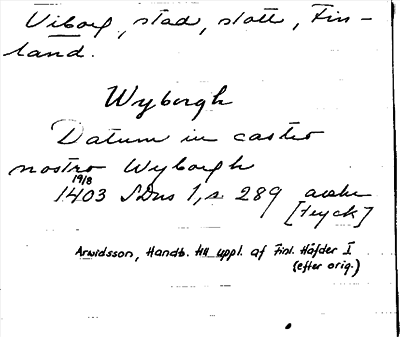 Viborg, stad, slott, Fin-
land.
Wyborgh
Datum in castro
nostro Wyborgh
19/8
1403 SDns 1, s 289
[tryck]
Arwidsson, Handb. till uppl. af Finl. Häfder I
(efter orig.)